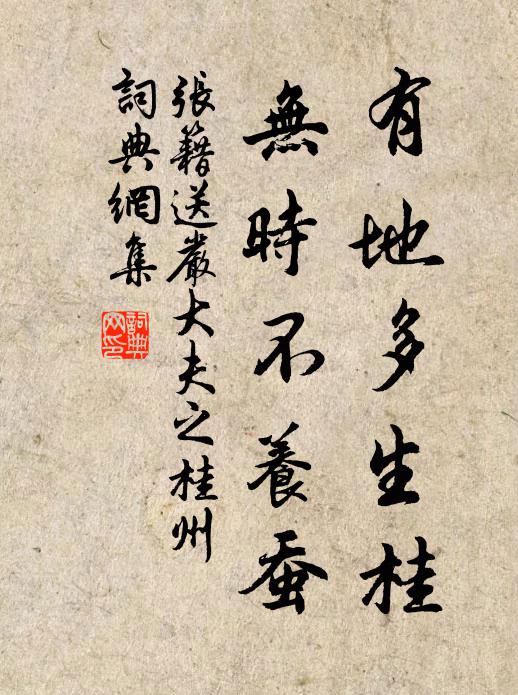 有地多生桂
無時不養蚕
張籍送嚴大夫之桂州
詞典網集
詞典
网印